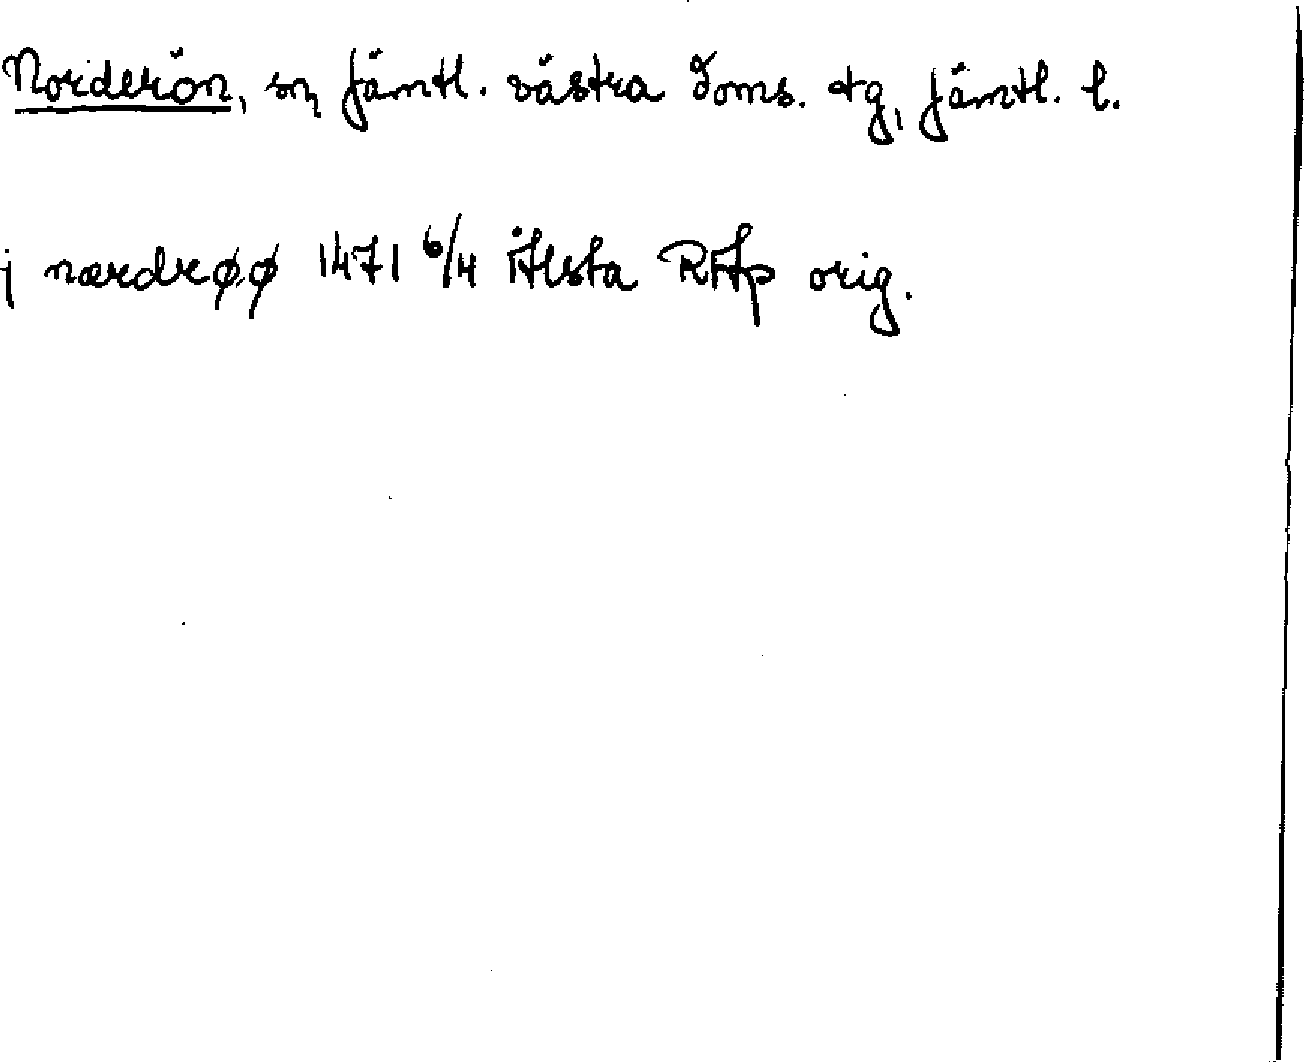 Norderön, sn, Jämtl. västra doms. tg, Jämtl. l.
j nærdrøø 1471 6/4 Ålsta RAp orig.